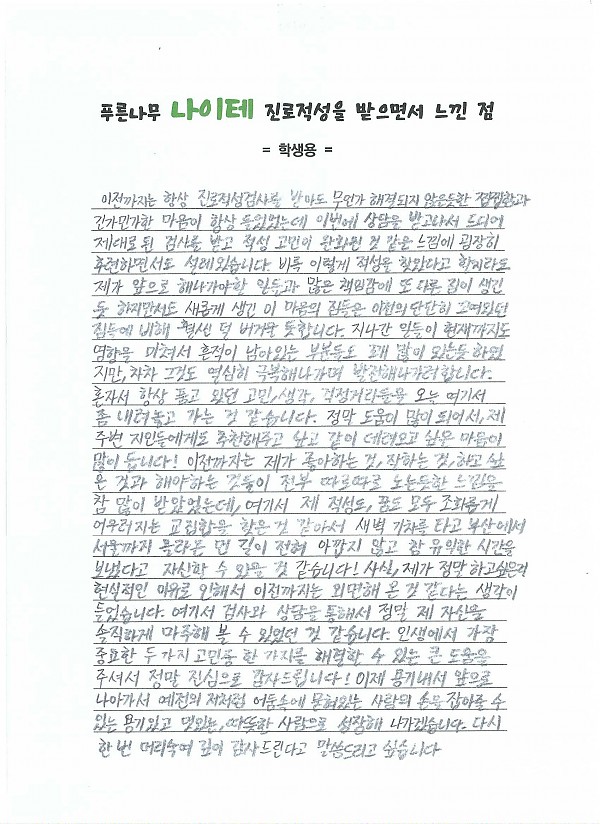 푸른나무 나이테 진로적성을 받으면서 느낀 점
= 학생용 =
이전까지는 항상 진로적성검사를 받아도 무언가 해결되지 않은듯한 찝찝함과
긴가민가한 마음이 항상 들었었는데 이번에 상담을 받고나서 드디어
제대로 된 검사를 받고 적성 고민이 완화된 것 같은 느낌에 굉장히
후련하면서도 설레었습니다. 비록 이렇게 적성을 찾았다고 할지라도
제가 앞으로 해나가야할 일들과 많은 책임감에 또 다른 짐이 생긴
듯 하지만서도 새롭게 생긴 이 마음의 짐들은 이전의 단단히 고여있던
짐들에 비해 훨씬 덜 버거울 듯합니다. 지나간 일들이 현재까지도
영향을 미쳐서 흔적이 남아있는 부분들도 꽤 많이 있는듯 하였
지만, 차차 그것도 열심히 극복해나가며 발전해나가려합니다.
혼자서 항상 품고 있던 고민, 생각, 걱정거리들을 오늘 여기서
좀 내려놓고 가는 것 같습니다. 정말 도움이 많이 되어서, 제
주변 지인들에게도 추천해주고 싶고 같이 데려오고 싶은 마음이
많이 듭니다! 이전까지는 제가 좋아하는 것, 잘하는 것, 하고 싶
은 것과 해야하는 것들이 전부 따로따로 노는듯한 느낌을
참 많이 받았었는데, 여기서 제 적성도, 꿈도 모두 조화롭게
어우러지는 교집합을 찾은 것 같아서 새벽 기차를 타고 부산에서
서울까지 올라온 먼 길이 전혀 아깝지 않고 참 유익한 시간을
보냈다고 자신할 수 있을 것 같습니다! 사실, 제가 정말 하고싶은걸
현실적인 이유로 인해서 이전까지는 외면해 온 것 같다는 생각이
들었습니다. 여기서 검사와 상담을 통해서 정말 제 자신을
솔직하게 마주해 볼 수 있었던 것 같습니다. 인생에서 가장
중요한 두 가지 고민중 한 가지를 해결할 수 있는 큰 도움을
주셔서 정말 진심으로 감사드립니다! 이제 용기내서 앞으로
나아가서 예전의 저처럼 어둠속에 묻혀있는 사람의 손을 잡아줄 수
있는 용기있고 멋있는, 따뜻한 사람으로 성장해 나가겠습니다. 다시
한 번 머리숙여 깊이 감사드린다고 말씀드리고 싶습니다